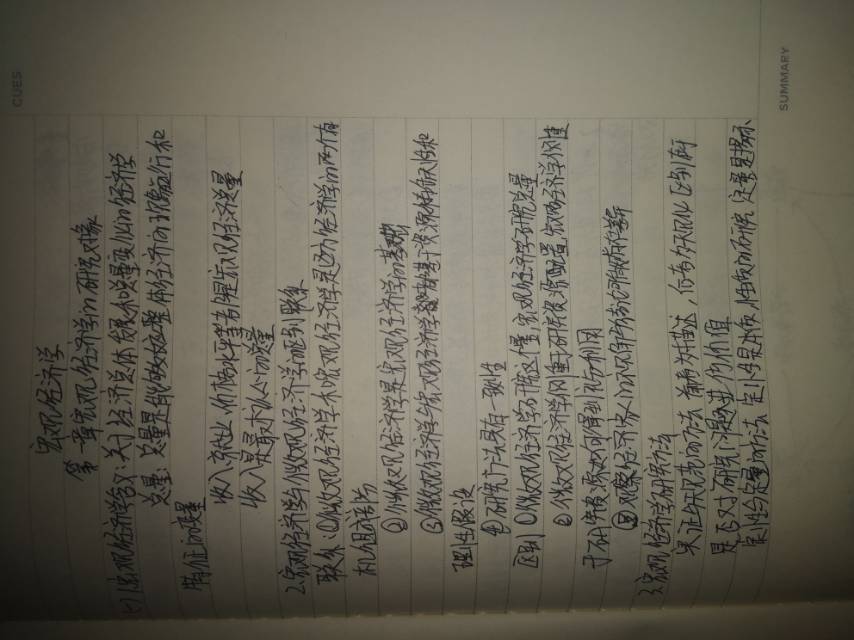 CUES
SUMMARY
宏观经济学
第一章宏观经济学的研究对象
(一)1.宏观经济学含义:关于经济总体发展水总量变化的经济学
总量:总量是能够反应整体经济的现象运行和
特征的变量
收入、就业、价格水平等者是宏观经济总量
收入是最核心的变量
2.宏观经济学与微观经济学的区别联系
联系:①微观经济学和宏观经济学是西方经济学的两个有
机组成部分
②微观经济学是宏观经济学的基础
③微观经济学与宏观经济学都基于资源稀缺性和
理性假设
④研究方法具有一致性
区别①微观经济学研究个量,宏观经济学研究总量
②微观经济学侧重于研究资源配置,宏观经济学侧重
于研究资源如何得到充分利用
③观察经济家的
3.宏观经济学研究方法
实证与规范的方法 前者为描述,后者为
是否对研究问题进行价值
定性与定量的方法 定性是 性质的研究 定量是揭示